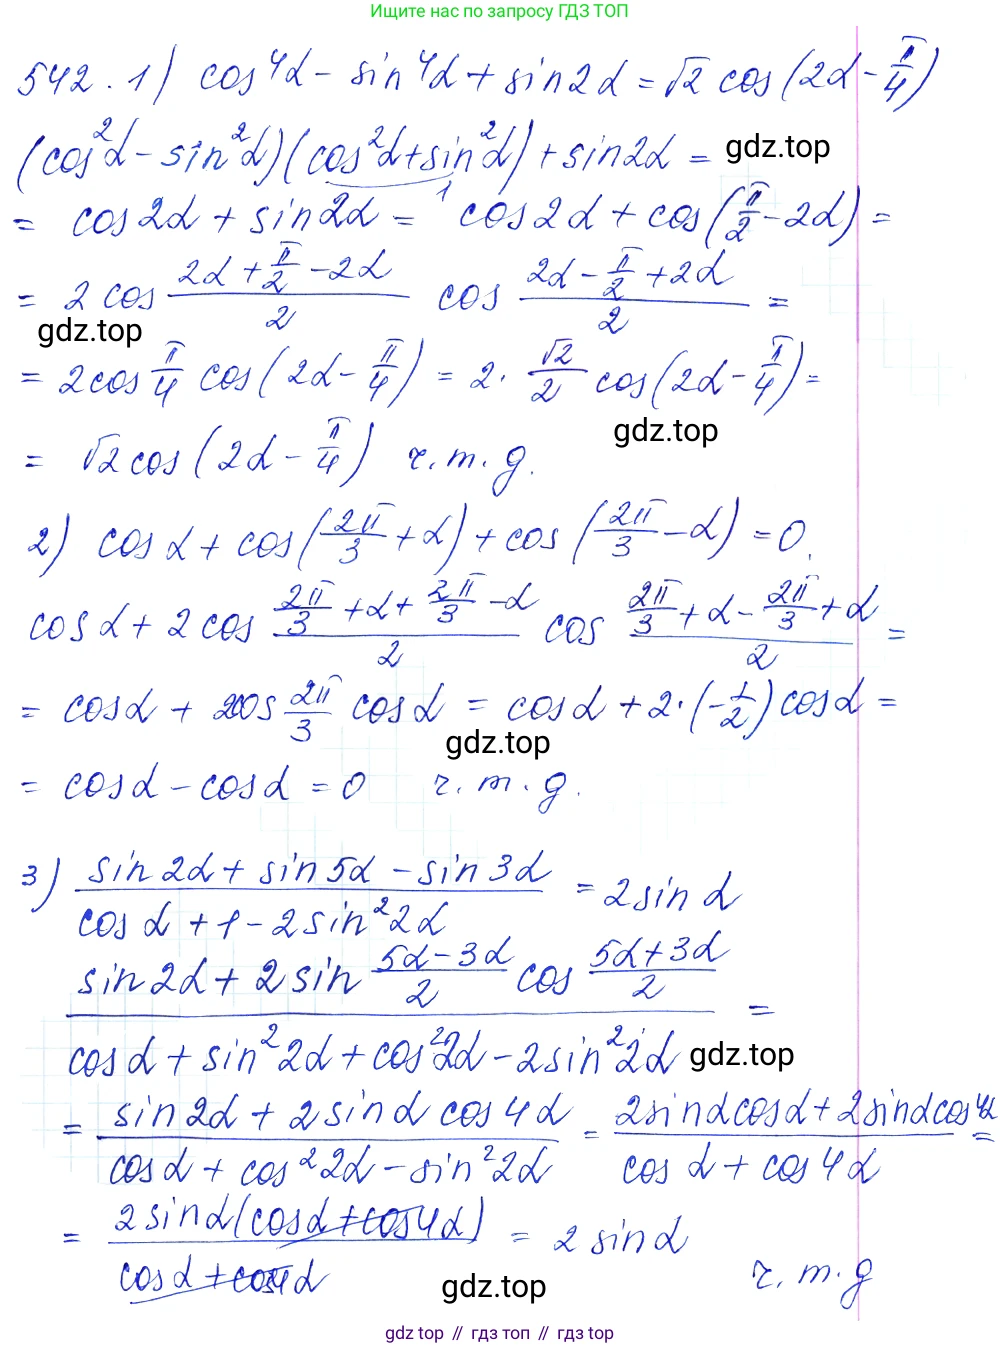 Ищите нас по запросу ГДЗ ТОП
542. 1) cos⁴α - sin⁴α + sin2α = √2 cos(2α - π/4)
(cos²α - sin²α)(cos²α + sin²α) + sin2α =
gdz.top
1
= cos2α + sin2α = cos2α + cos(π/2 - 2α) =
= 2cos (2α + π/2 - 2α)/2 cos (2α - π/2 + 2α)/2 =
gdz.top
= 2cos π/4 cos(2α - π/4) = 2 · √2/2 cos(2α - π/4) =
gdz.top
= √2 cos(2α - π/4) ч.т.д.
2) cos α + cos(2π/3 + α) + cos(2π/3 - α) = 0.
cos α + 2cos (2π/3 + α + 2π/3 - α)/2 cos (2π/3 + α - 2π/3 + α)/2 =
= cosα + 2cos 2π/3 cosα = cosα + 2·(-1/2)cosα =
gdz.top
= cosα - cosα = 0 ч.т.д.
3) (sin2α + sin5α - sin3α)/(cosα + 1 - 2sin²2α) = 2sinα
(sin2α + 2sin (5α - 3α)/2 cos (5α + 3α)/2)/(cosα + sin²2α + cos²2α - 2sin²2α) =
gdz.top
= (sin2α + 2sinα cos4α)/(cosα + cos²2α - sin²2α) = (2sinαcosα + 2sinαcos4α)/(cosα + cos4α) =
= (2sinα(cosα + cos4α))/(cosα + cos4α) = 2sinα
gdz.top
ч.т.д
gdz top // гдз топ // гдз top